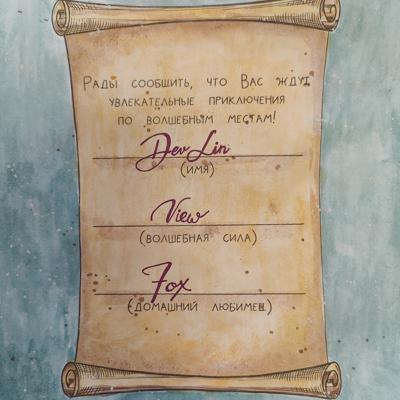 Рады сообщить, что Вас ждут
увлекательные приключения
по волшебным местам!
Dev Lin
(имя)
View
(волшебная сила)
Fox
(домашний любимец)